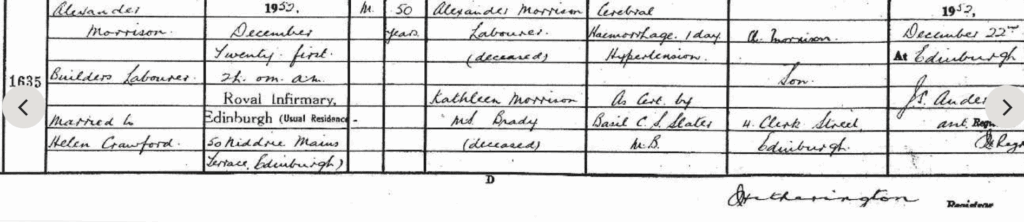 1635
Alexander
Morrison.
Builders Labourer.
Married to
Helen Crawford.
1952,
December
Twenty first.
2h. 0m. a.m.
Royal Infirmary,
Edinburgh (Usual Residence-
50 Niddrie Mains
Terrace, Edinburgh)
M.
50
years
Alexander Morrison
Labourer
(deceased)
Kathleen Morrison
m.s. Brady
(deceased)
Cerebral
Haemorrhage. 1 day
Hypertension.
As Cert. by
Basil C. S. Slater
M.B.
A. Morrison.
Son.
4. Clerk Street,
Edinburgh.
1952,
December 22nd
At Edinburgh
Regr
D
Registrar